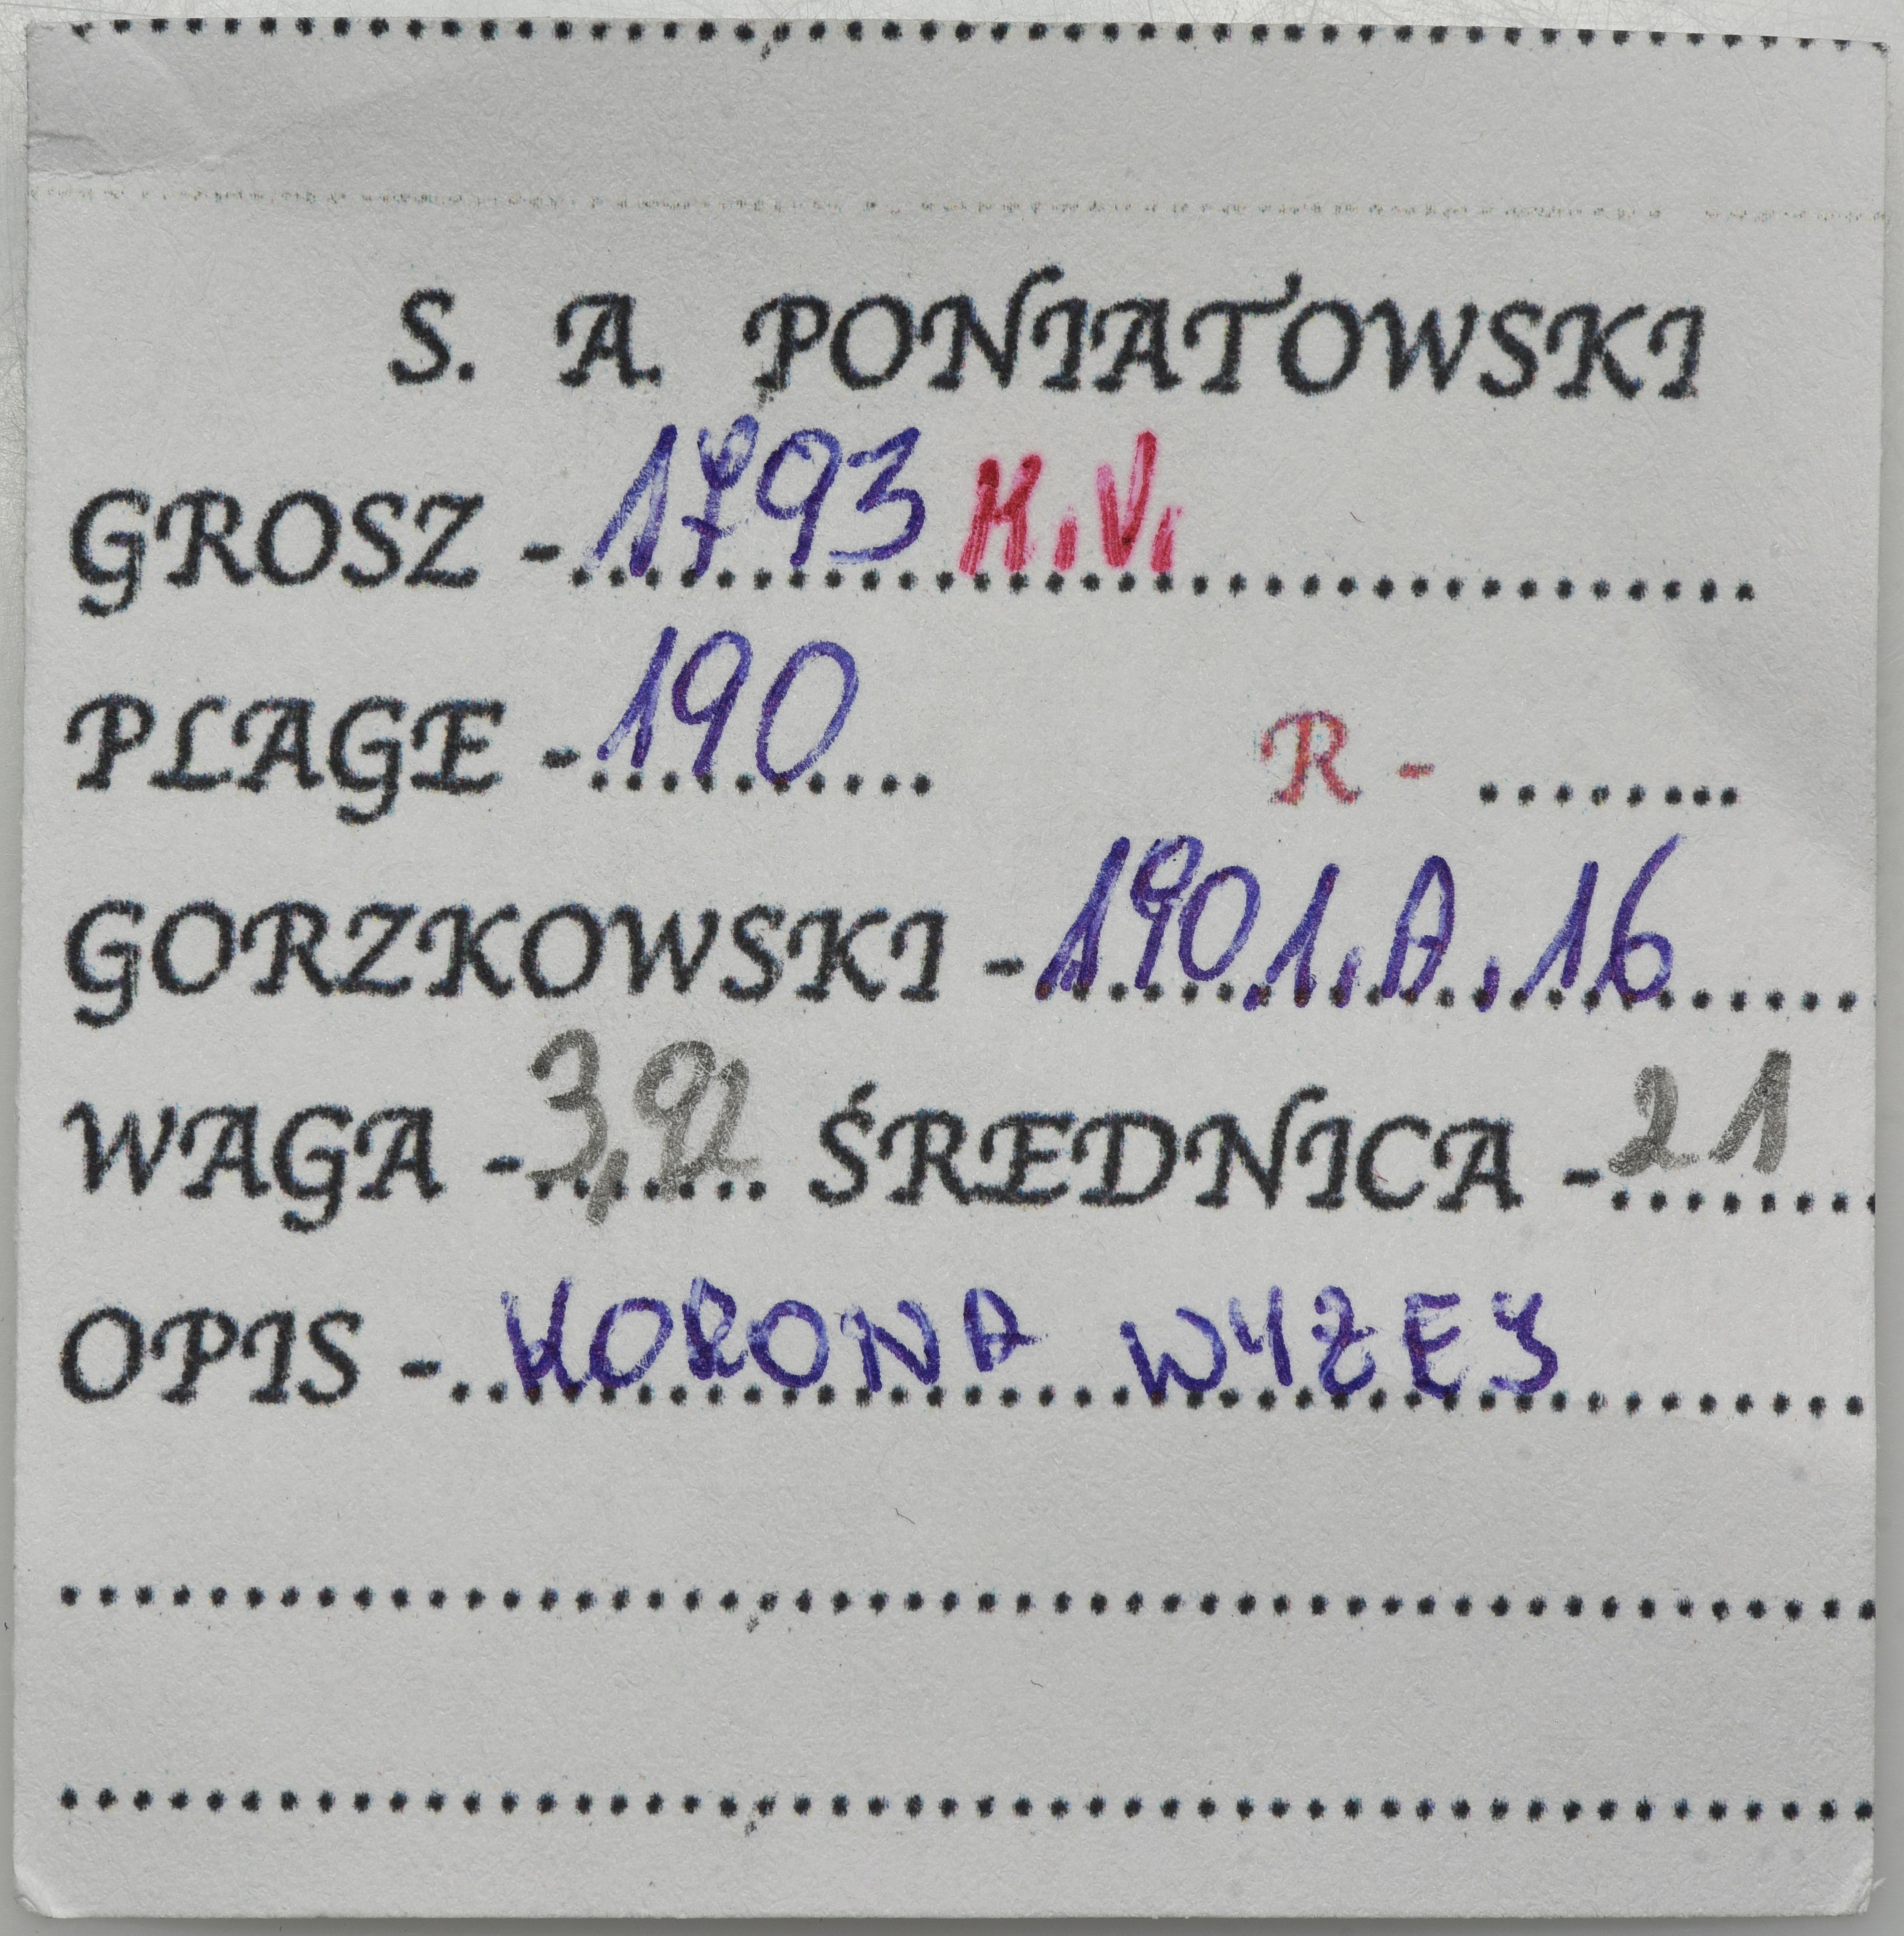 S. A. PONIATOWSKI
GROSZ - 1793 M.V.
PLAGE - 190 R - ........
GORZKOWSKI - 190,1,A,16
WAGA - 3,92 ŚREDNICA - 21
OPIS - KORONA WYŻEJ